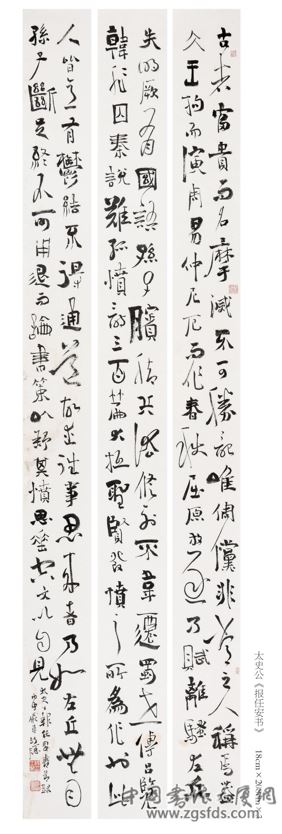 古者富貴而名摩滅不可勝記唯倜儻非常之人稱焉蓋
文王拘而演周易仲尼厄而作春秋屈原放逐乃賦離騷左丘
失明厥有國語孫子臏腳兵法修列不韋遷蜀世傳呂覽
韓非囚秦說難孤憤詩三百篇大抵聖賢發憤之所為作也此
人皆意有鬱結不得通道故述往事思來者乃如左丘無目
孫子斷足終不可用退而論書策以舒其憤思垂空文以自見
太史公《报任安书》
www.zgsfds.com